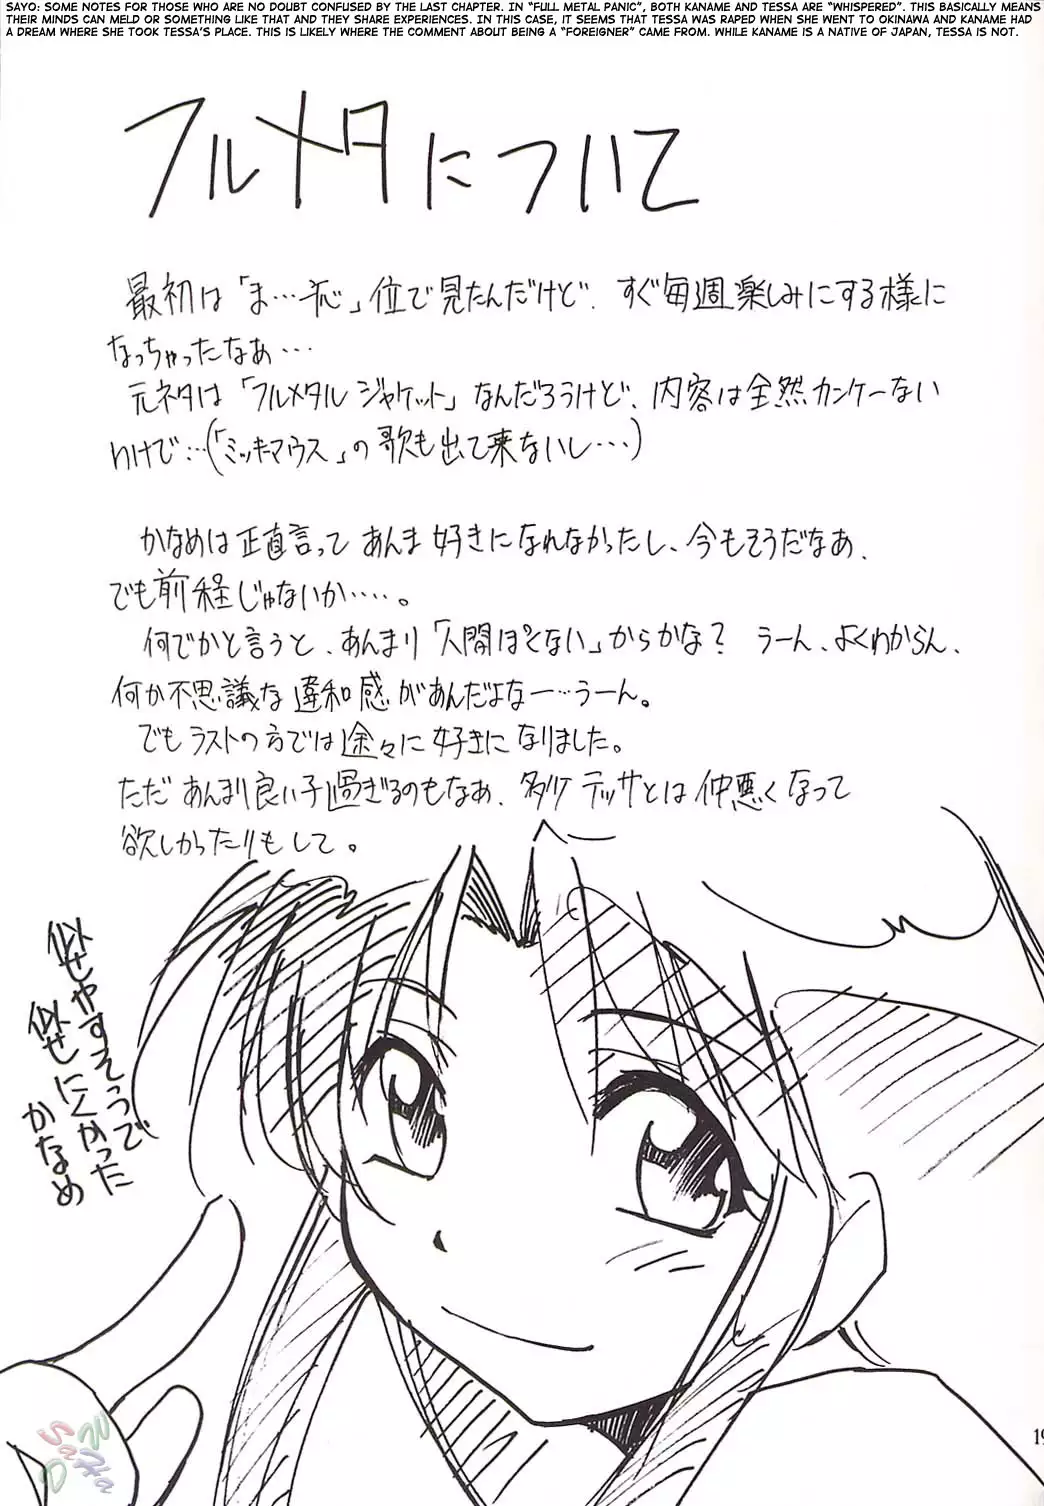 SAYO: SOME NOTES FOR THOSE WHO ARE NO DOUBT CONFUSED BY THE LAST CHAPTER. IN "FULL METAL PANIC", BOTH KANAME AND TESSA ARE "WHISPERED". THIS BASICALLY MEANS
THEIR MINDS CAN MELD OR SOMETHING LIKE THAT AND THEY SHARE EXPERIENCES. IN THIS CASE, IT SEEMS THAT TESSA WAS RAPED WHEN SHE WENT TO OKINAWA AND KANAME HAD
A DREAM WHERE SHE TOOK TESSA'S PLACE. THIS IS LIKELY WHERE THE COMMENT ABOUT BEING A "FOREIGNER" CAME FROM. WHILE KANAME IS A NATIVE OF JAPAN, TESSA IS NOT.
フルメタについて
最初は「ま…一応」位で見たんだけど、すぐ毎週楽しみにする様に
なっちゃったなぁ…
元ネタは「フルメタルジャケット」なんだろうけど、内容は全然カンケーない
わけで…(「ミッキーマウス」の歌も出て来ないし…)
かなめは正直言ってあんま好きになれなかったし、今もそうだなぁ、
でも前程じゃないか……。
何でかと言うと、あんまり「人間ぽくない」からかな? うーん、よくわからん、
何か不思議な違和感があんだよなー…うーん。
でもラストの方では途々に好きになりました。
ただあんまり良い子過ぎるのもなぁ、多少テッサとは仲悪くなって
欲しかったりもして。
似せやすそうで
似せにくかった
かなめ
19